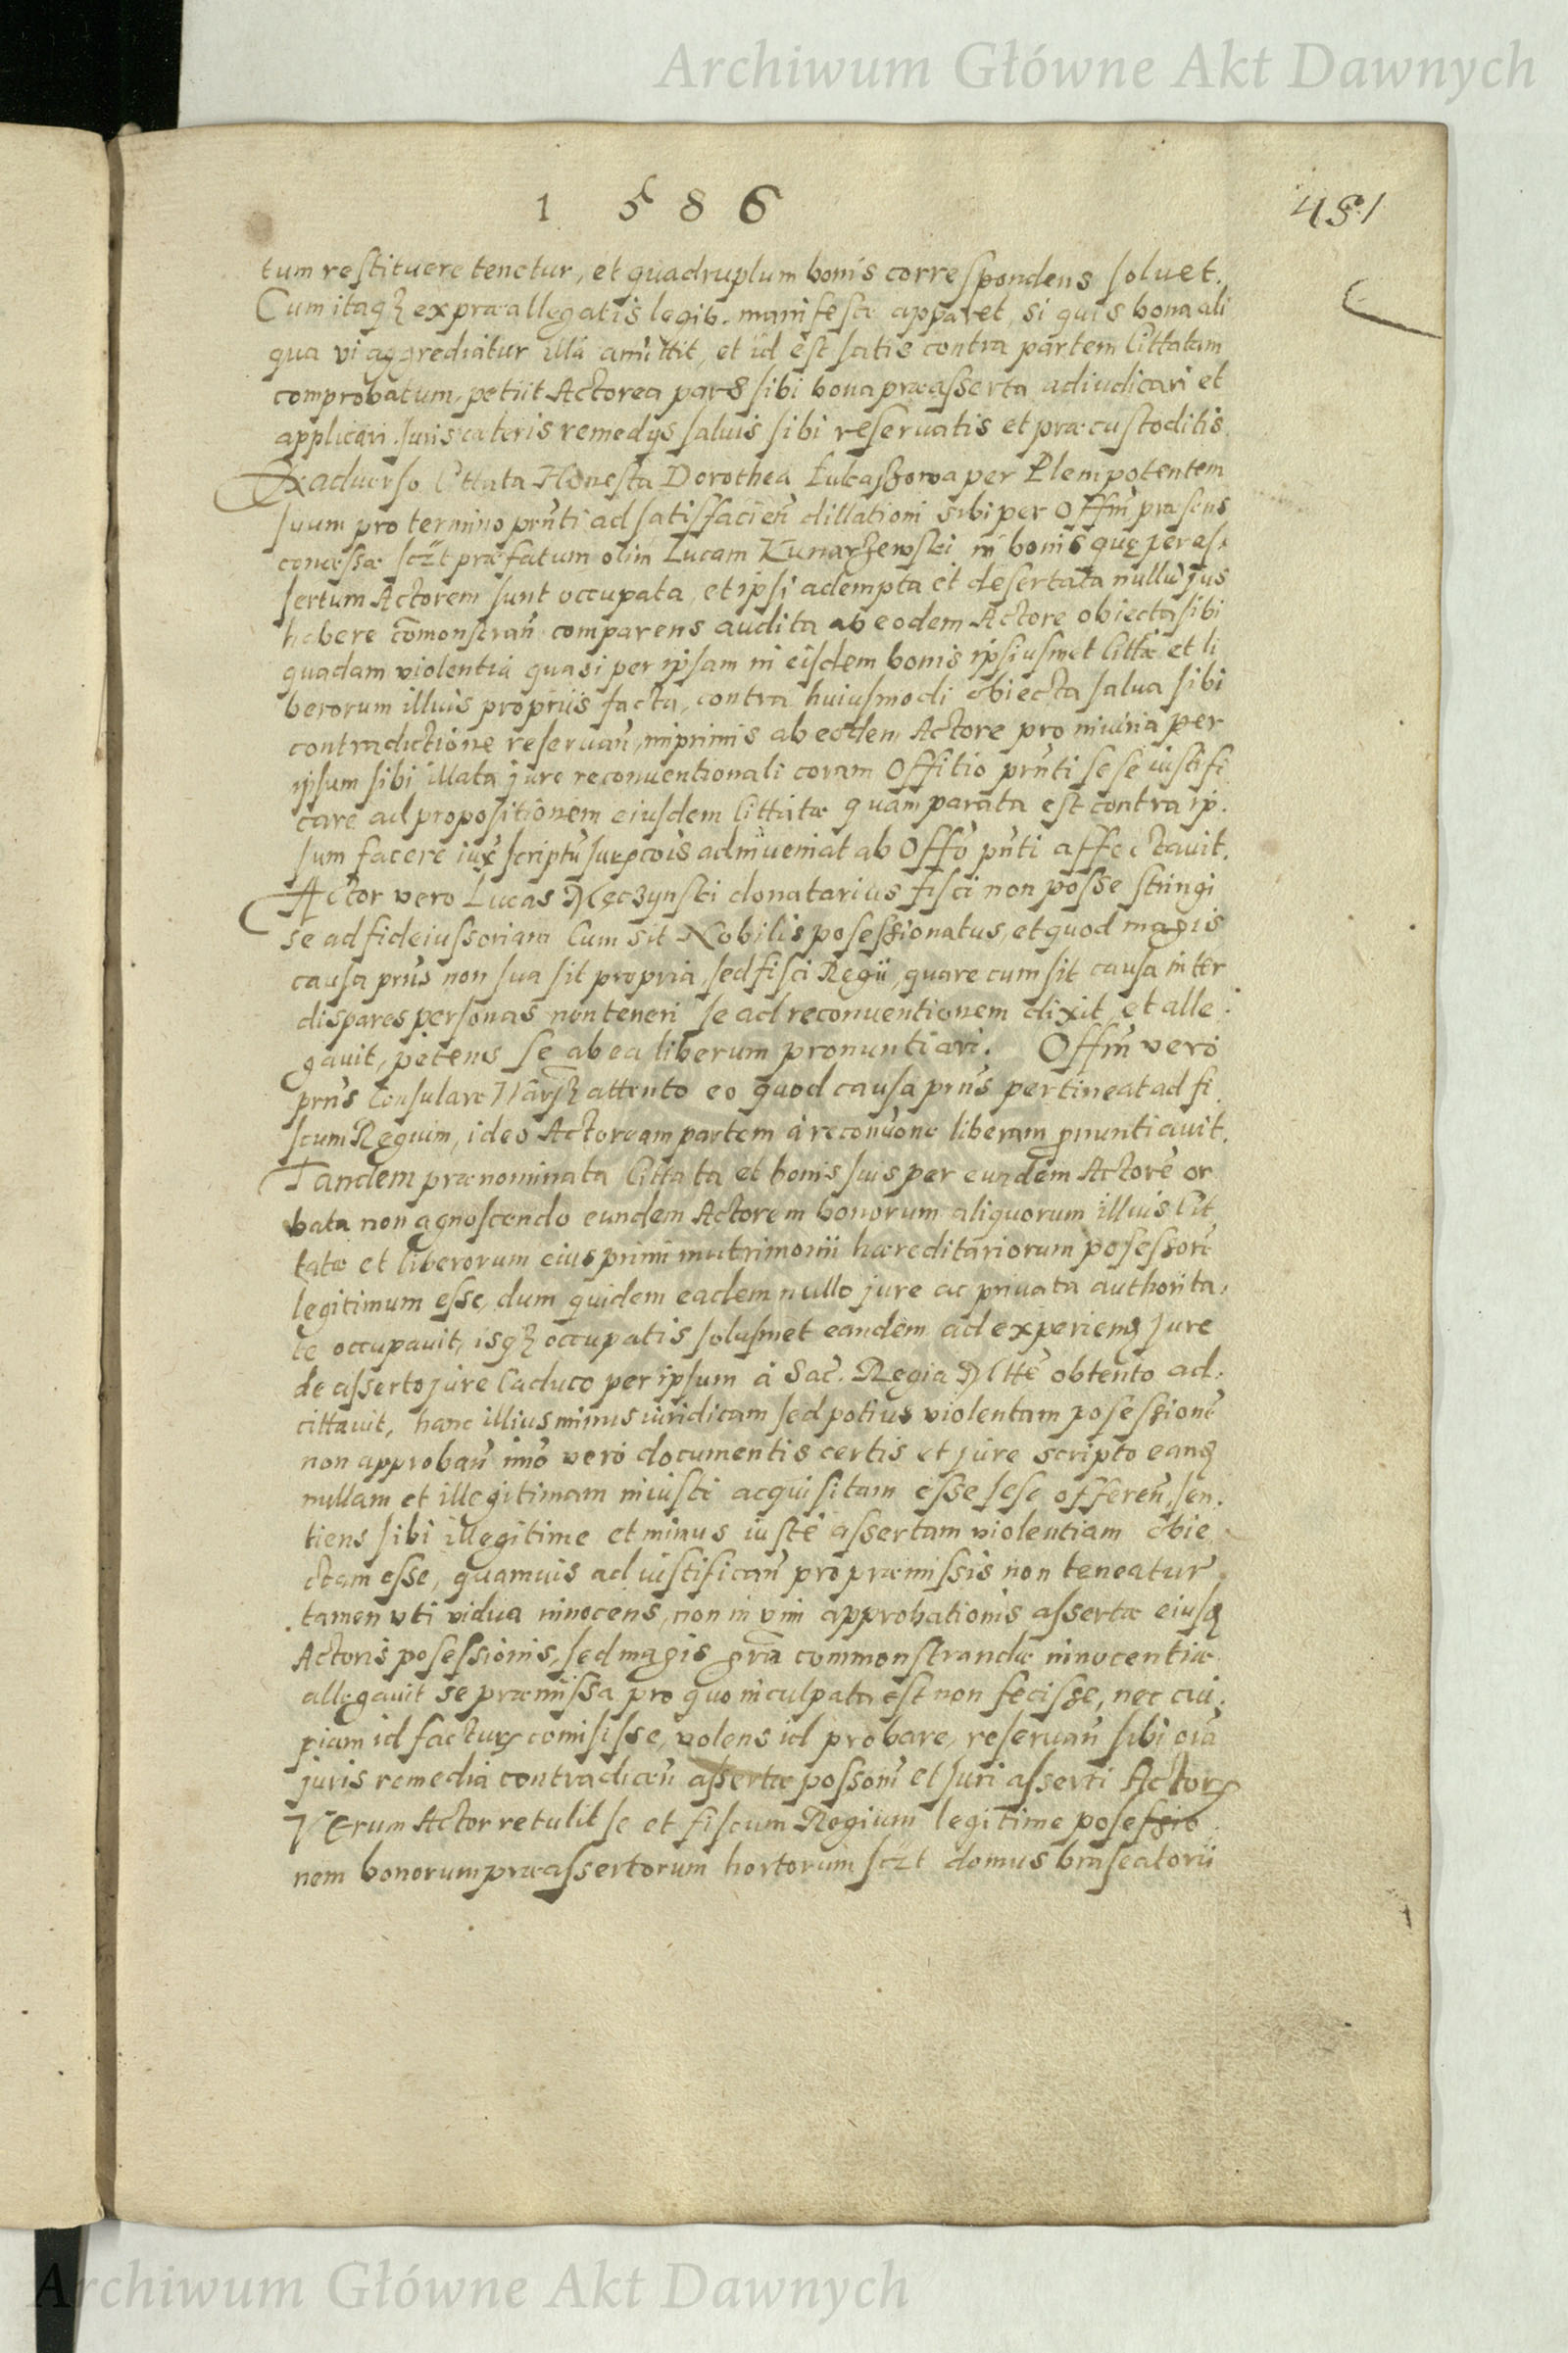 Archiwum Główne Akt Dawnych
1 5 8 6
481
tum restituere tenetur, et quadruplum bonis correspondens soluet.
Cum itaqȝ ex præallegatis legib. manifeste apparet, si quis bona ali
qua vi aggrediatur illa amittit, et id est satis contra partem Cittatam
comprobatum, petiit Actorea pars sibi bona præasserta adiudicari et
applicari. Juris cæteris remedijs saluis sibi reseruatis et præcustoditis.
Ex aduerso Cittata Honesta Dorothea Łukaszowa per Plenipotentem
suum pro termino prñti ad satisfacieñ dillationi sibi per Offm præsens
concessæ sczt præfatum olim Lucam Kunarzewski in bonis quę per as,
sertum Actorem sunt occupata, et ipsi adempta et desertata nullũ jus
habere cõmonstrañ comparens audita ab eodem Actore obiecta sibi
quadam violentia quasi per ipsam in eisdem bonis ipsiusmet Cittæ et li
berorum illius propriis facta, contra huiusmodi obiecta salua sibi
contradictione reseruañ, imprimis ab eodem Actore pro iniuria per
ipsum sibi illata jure reconuentionali coram Offitio prñti sese iustifi
care ad propositionem eiusdem Cittatæ quam parata est contra ip.
sum facere admueniat ab Offo pñti affectauit.
Actor vero Lucas Męczynski donatarius fisci non posse stringi
se ad fideiussoriam Cum sit Nobilis posessionatus, et quod magis
causa prñs non sua sit propria, sed fisci Regii, quare cum sit causa inter
dispares personas non teneri se ad reconuentionem dixit et alle
gauit, petens se ab ea liberum pronuntiari. Offm vero
prñs Consulare Warsȝ attento eo quod causa prñs pertineat ad fi
scum Regium, ideo Actoream partem à reconuone liberam pnuntiauit.
Tandem prænominata Cittata et bonis suis per eundem Actorẽ or
bata non agnoscendo eundem Actorem bonorum aliquorum illius Cit
tatæ et liberorum eius primi matrimonii hæreditariorum posessorẽ
legitimum esse, dum quidem eadem nullo jure ac priuata authorita,
te occupauit, isqȝ occupatis solusmet eandem ad experienȝ jure
de asserto jure Caduco per ipsum à Sac. Regia Mtte obtento ad,
cittauit, hanc illius minus iuridicam sed potius violentam posessionẽ
non approbañ imo vero documentis certis et jure scripto eanȝ
nullam et illegitimam iniuste acquisitam esse sese offereñ, sen,
tiens sibi illegitime et minus iuste assertam violentiam obie
ctam esse, quamuis ad iustificañ pro præmissis non teneatur
tamen vti vidua innocens, non in vim approbationis assertæ eiusȝ
Actoris posessionis, sed magis gra commonstrandæ innocentiæ
allegauit se præmissa pro quo inculpata est non fecisse, nec cui,
piam id factur comisisse, volens id probare, reseruañ sibi oia
juris remedia contradicen assertæ possoni et juri asserti Actoris
Verum Actor retulit se et fiscum Regium legitime posessio
nem bonorum præassertorum hortorum sczt domus braseatorii
Archiwum Główne Akt Dawnych